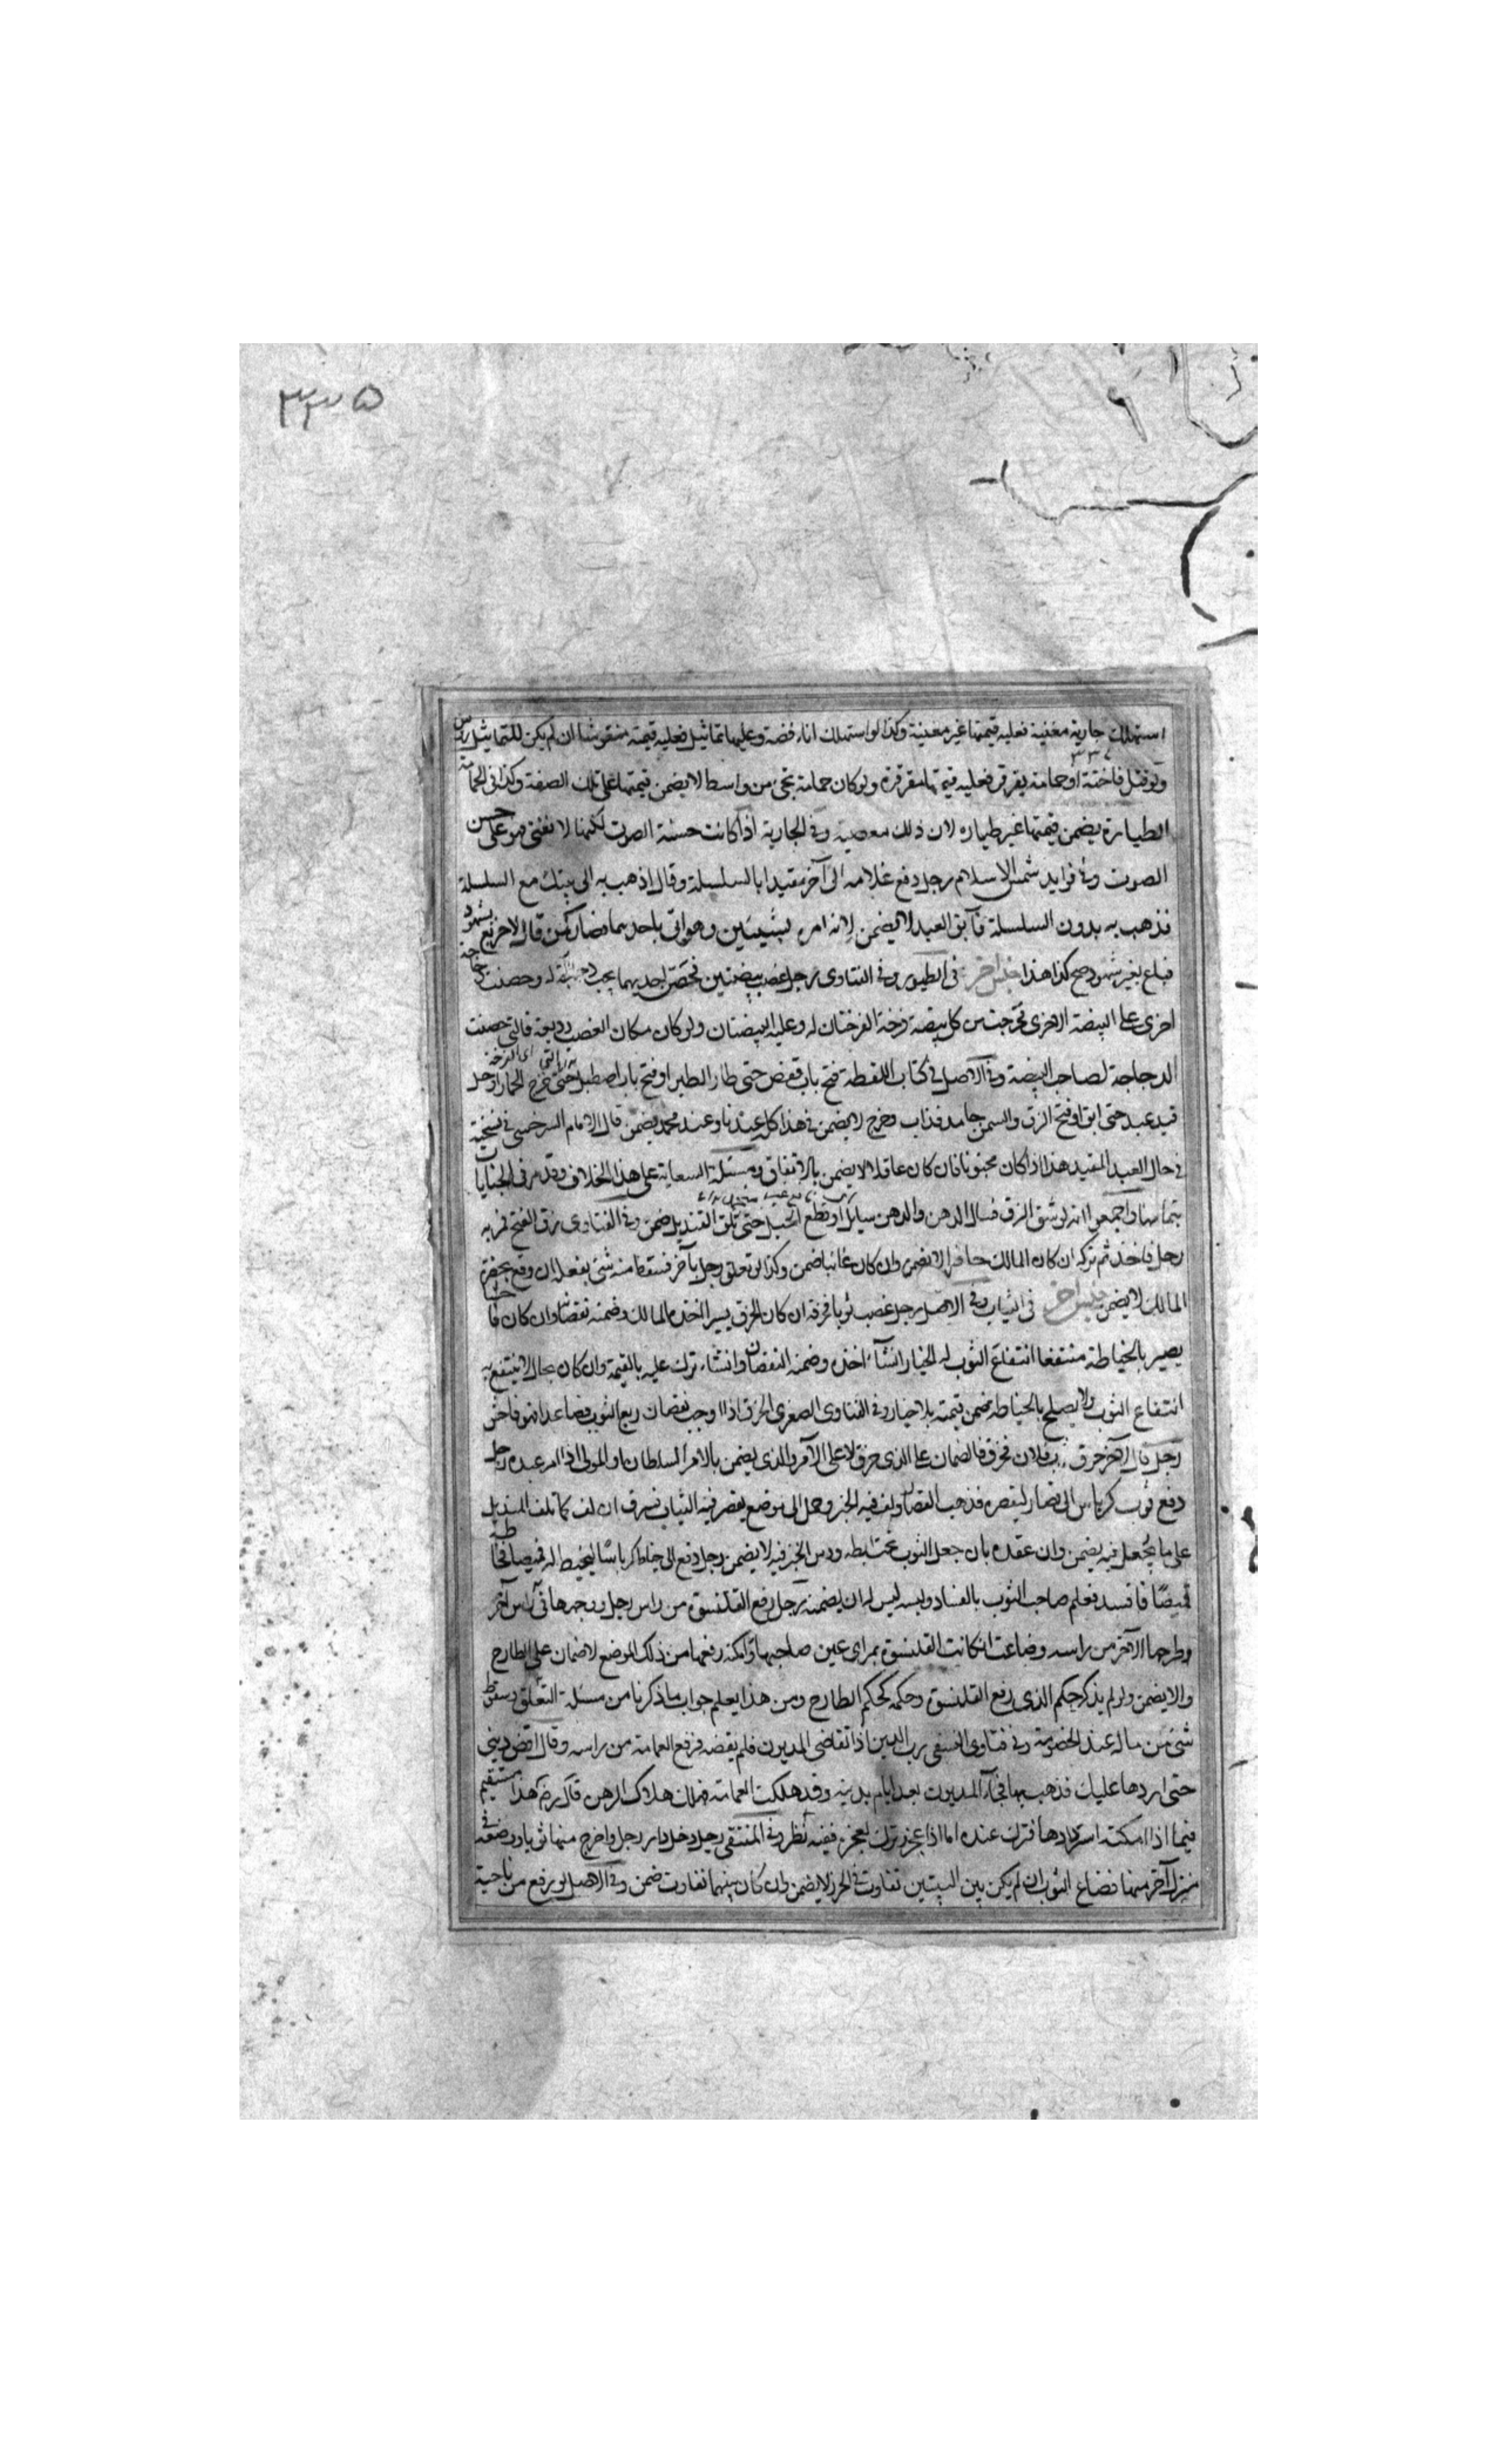 ۳۳۵
استهلك جارية مغنية فعليه قيمتها غير مغنية وكذا لو استهلك اناء فضة وعليها تماثيل فعليه قيمته منقوشا ان لم يكن للتماثيل راس
ولو قتل فاختة او حمامة يقرقر فعليه قيمتها مقرقرة ولو كان حمامة تجئ من واسط لا يضمن قيمتها على تلك الصفة وكذا في الحمامة
الطيارة يضمن قيمتها غير طياره لان ذلك معصية وفي الجارية اذا كانت حسنة الصوت لكنها لا تغني فهو على حسن
الصوت وفي فوايد شمس الاسلام رجل دفع غلامه الى آخر مقيدا بالسلسلة وقال اذهب به الى بيتك مع السلسلة
فذهب به بدون السلسلة فآبق العبد لا يضمن لانه امره بشيئين وهو اتى باحدهما فصار كمن قال لاخر بع بشهود
فباع بغير شهود صح كذا هذا جنس آخر في الطيور وفي الفتاوى رجل غصب بيضتين فحضن احديهما وحضنت دجاجة
اخرى على البيضة الاخرى فخرجت من كل بيضة فرخة الفرختان له وعليه البيضتان ولو كان مكان الغصب وديعة فالتي حضنت
الدجاجة لصاحب البيضة وفي الاصل في كتاب اللقطة فتح باب قفص حتى طار الطير او فتح باب اصطبل حتى خرج الحمار او حل
قيد عبد حتى ابق او فتح الزق والسمن جامد فذاب وخرج لا يضمن في هذا كله عندنا وعند محمد يضمن قال الامام السرخسي في نسخته
في حال العبد المقيد هذا اذا كان مجنونا فان كان عاقلا لا يضمن بالاتفاق ومسئلة السعاية على هذا الخلاف وقد مر في الجنايات
بتمامها واجمعوا انه لو شق الزق فسال الدهن والدهن سايل او قطع الحبل حتى تلف القنديل ضمن وفي الفتاوى زق انفتح فمر به
رجل فاخذ ثم تركه ان كان المالك حاضرا لا يضمن وان كان غائبا ضمن وكذا لو تعلق رجل بآخر فسقط منه شئ بفعله ان وقع بحضرة
المالك لا يضمن جنس آخر في الثياب وفي الاصل رجل غصب ثوبا فخرقه ان كان الخرق يسيرا اخذه المالك وضمنه نقصانه وان كان فاحشا
يصير بالخياطة منتفعا انتفاع الثوب له الخيار ان شاء اخذه وضمنه النقصان وان شاء ترك عليه بالقيمة وان كان بحال لا ينتفع به
انتفاع الثوب ولا يصلح بالخياطة يضمن قيمته بلا خيار وفي الفتاوى الصغرى الخرق اذا اوجب نقصان ربع الثوب فصاعدا فهو فاحش
رجل قال لآخر خرق ثوب فلان فخرق فالضمان على الذي خرق لا على الآمر والذي يضمن بالامر السلطان او المولى اذا امر عبده رجل
دفع ثوب كرباس الى قصار ليقصره فذهب القصار ولف فيه الخبز وحمل الى موضع يقصر فيه الثياب فسرق ان لف كما تلف المنديل
على ما يجعل فيه يضمن وان عقده بان جعل الثوب تحت ابطه ودس الخبز فيه لا يضمن رجل دفع الى خياط كرباسا ليخيط له قميصا فخاطه
قميصا فاسدا فعلم صاحب الثوب بالفساد ولبسه ليس له ان يضمنه رجل رفع القلنسوة من راس رجل ووضعها في راس آخر
وطرحها الآخر من راسه وضاعت ان كانت القلنسوة بمراى عين صاحبها وامكنه رفعها من ذلك الموضع لا ضمان على الطارح
والا يضمن ولو لم يذكر حكم الذي رفع القلنسوة وحكمه كحكم الطارح ومن هذا يعلم جواب ما ذكرنا من مسئلة التعلق وسقوط
شئ من ماله عند الخصومة وفي فتاوى النسفي رب الدين اذا تقاضى المديون فلم يقضه فرفع العمامة من راسه وقال اقض ديني
حتى اردها عليك فذهب بها فجاء المديون بعد ايام بدينه وقد هلكت العمامة فهلك هلاك الرهن قال رضى هذا مستقيم
فيما اذا امكنه استردادها فترك عنده اما اذا عجز وترك لعجزه ففيه نظر وفي المنتقى رجل دخل دار رجل واخرج منها ثوبا ووضعه في
منزل آخر منها فضاع الثوب ان لم يكن بين البيتين تفاوت في الحرز لا يضمن وان كان بينهما تفاوت ضمن وفي الاصل لو رفع من ناحية